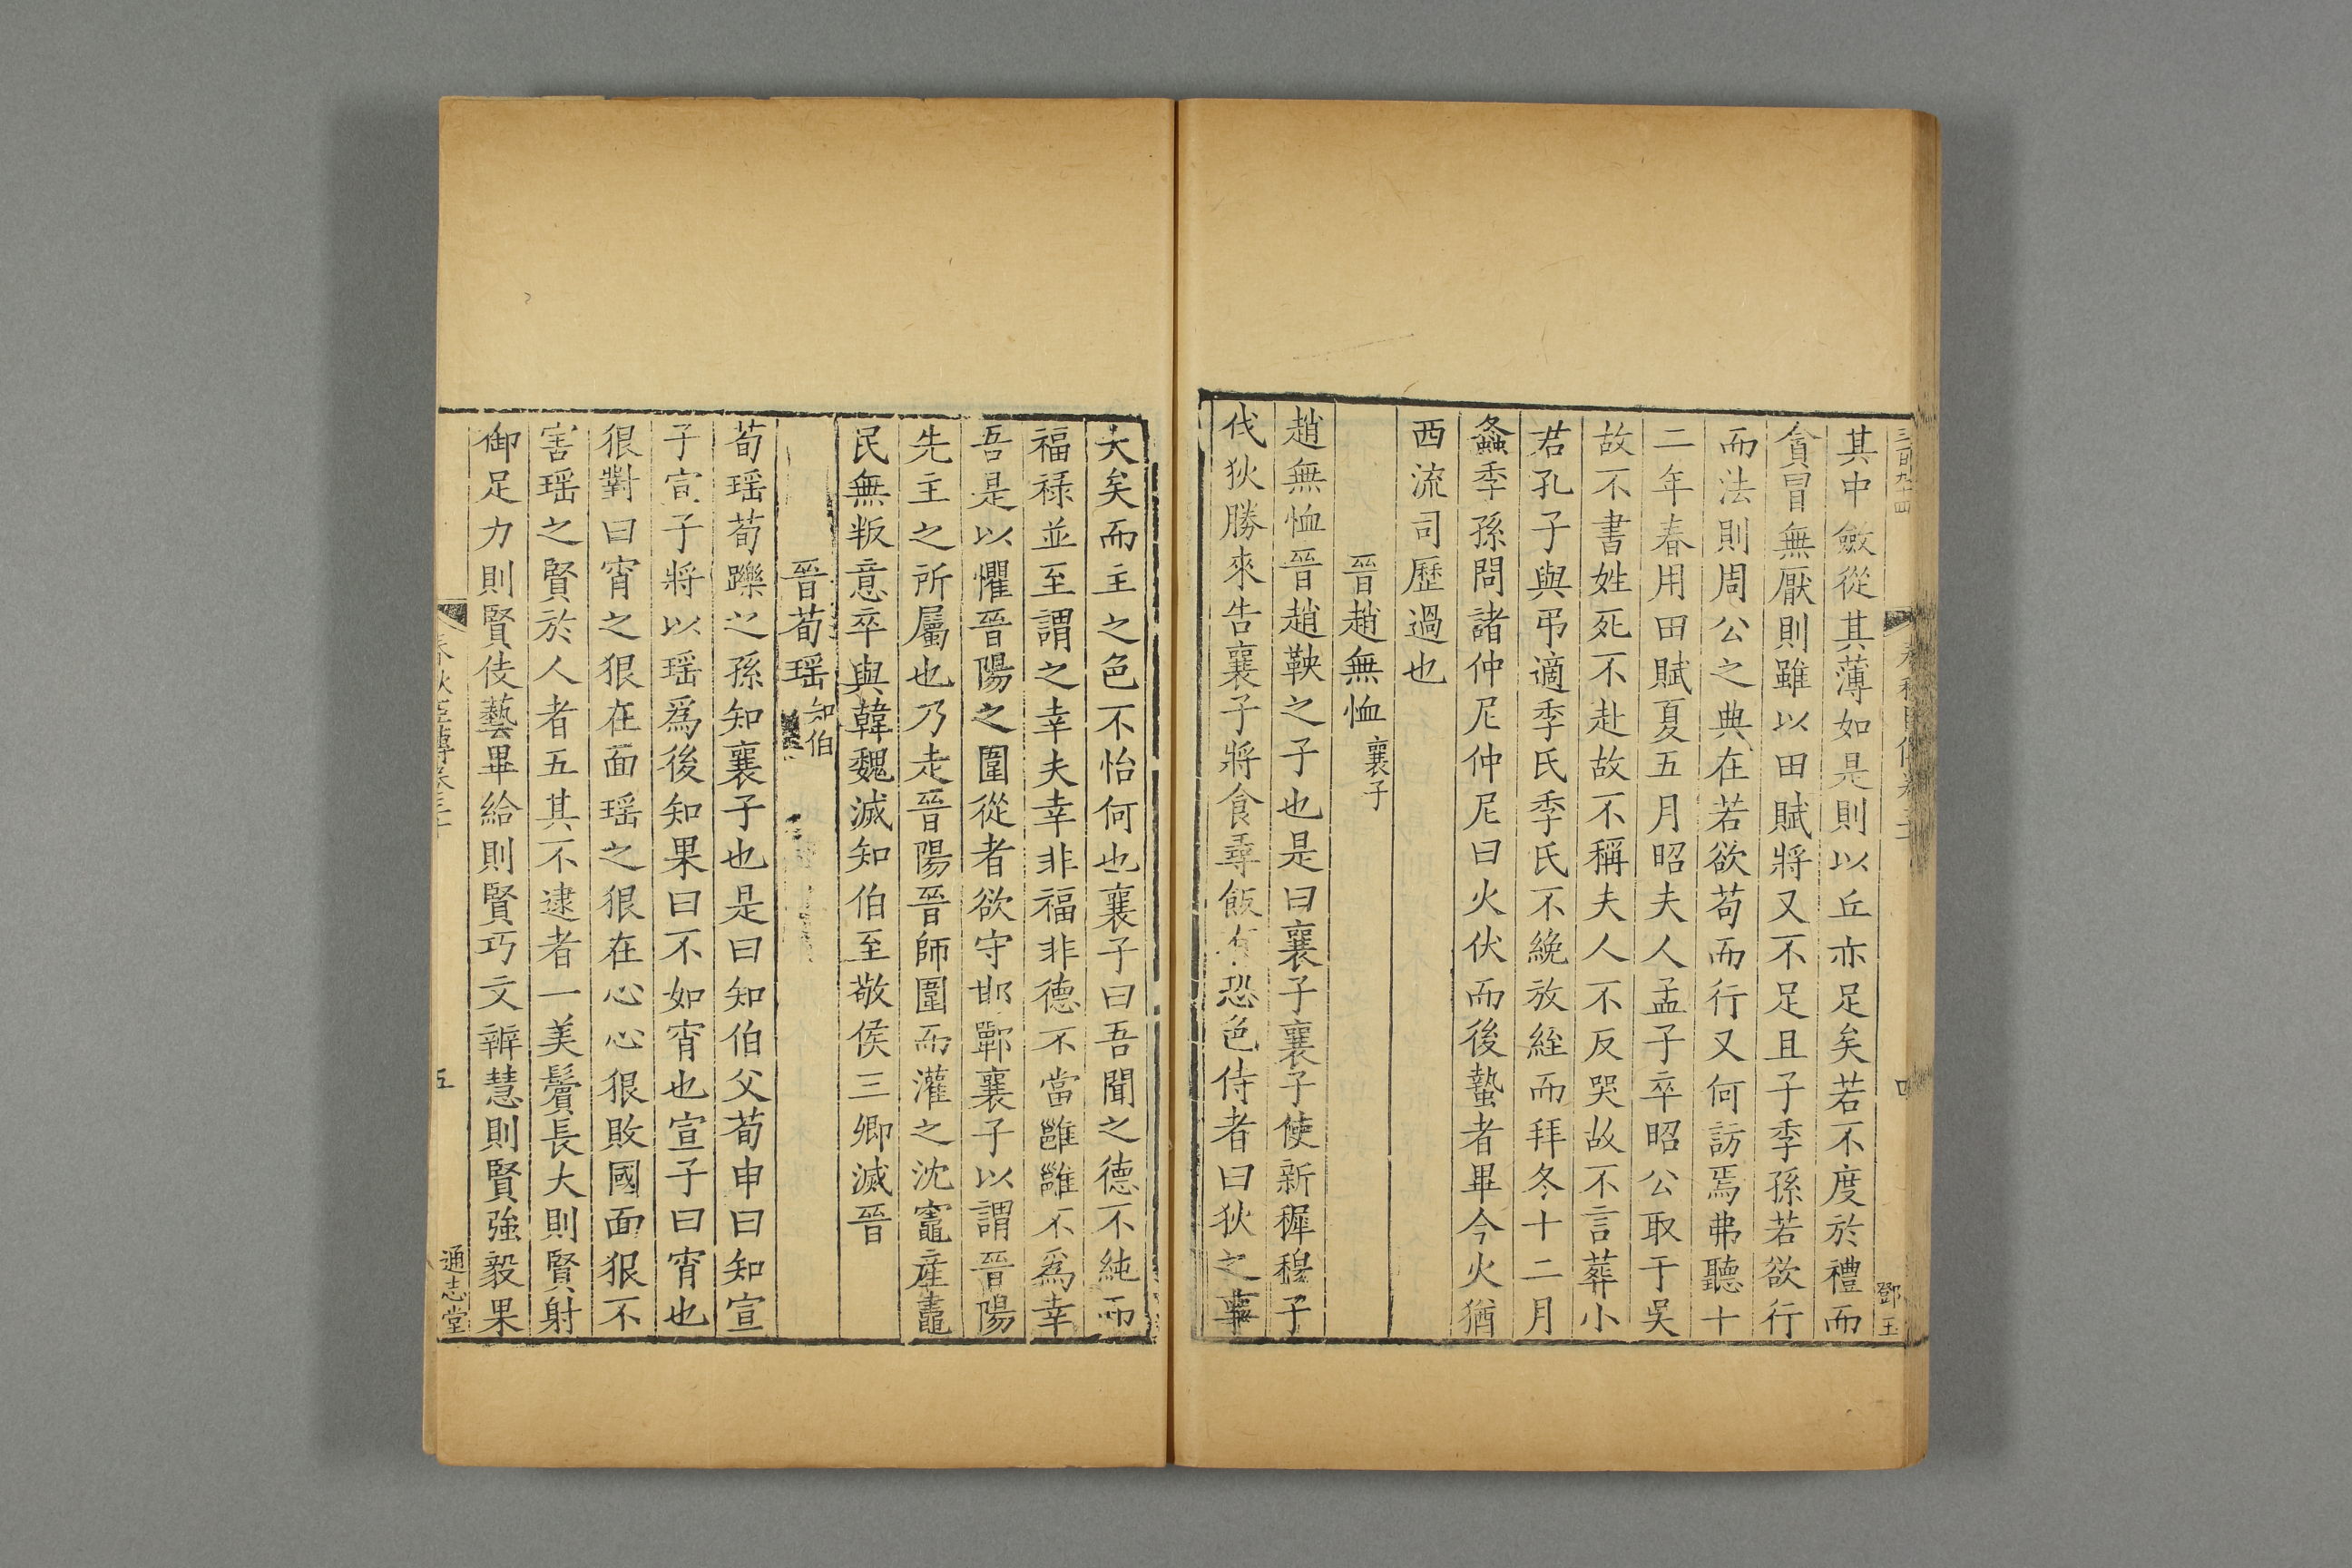 三百九十四
鄧玉
其中斂從其薄如是則以丘亦足矣若不度於禮而
貪冒無厭則雖以田賦將又不足且子季孫若欲行
而法則周公之典在若欲苟而行又何訪焉弗聽十
二年春用田賦夏五月昭夫人孟子卒昭公取于吳
故不書姓死不赴故不稱夫人不反哭故不言葬小
君孔子與弔適季氏季氏不絻放絰而拜冬十二月
螽季孫問諸仲尼仲尼曰火伏而後蟄者畢今火猶
西流司歷過也
晉趙無恤襄子
趙無恤晉趙鞅之子也是曰襄子襄子使新穉穆子
伐狄勝來告襄子將食尋飯有恐色侍者曰狄之事
大矣而主之色不怡何也襄子曰吾聞之德不純而
福祿並至謂之幸夫幸非福非德不當雝雝不為幸
吾是以懼晉陽之圍從者欲守邯鄲襄子以謂晉陽
先主之所屬也乃走晉陽晉師圍而灌之沈竈產鼃
民無叛意卒與韓魏滅知伯至敬侯三卿滅晉
晉荀瑤知伯
荀瑤荀躒之孫知襄子也是曰知伯父荀申曰知宣
子宣子將以瑤為後知果曰不如宵也宣子曰宵也
狠對曰宵之狠在面瑤之狠在心心狠敗國面狠不
害瑤之賢於人者五其不逮者一美鬢長大則賢射
御足力則賢伎藝畢給則賢巧文辨慧則賢強毅果
春秋臣傳卷三十
五
通志堂